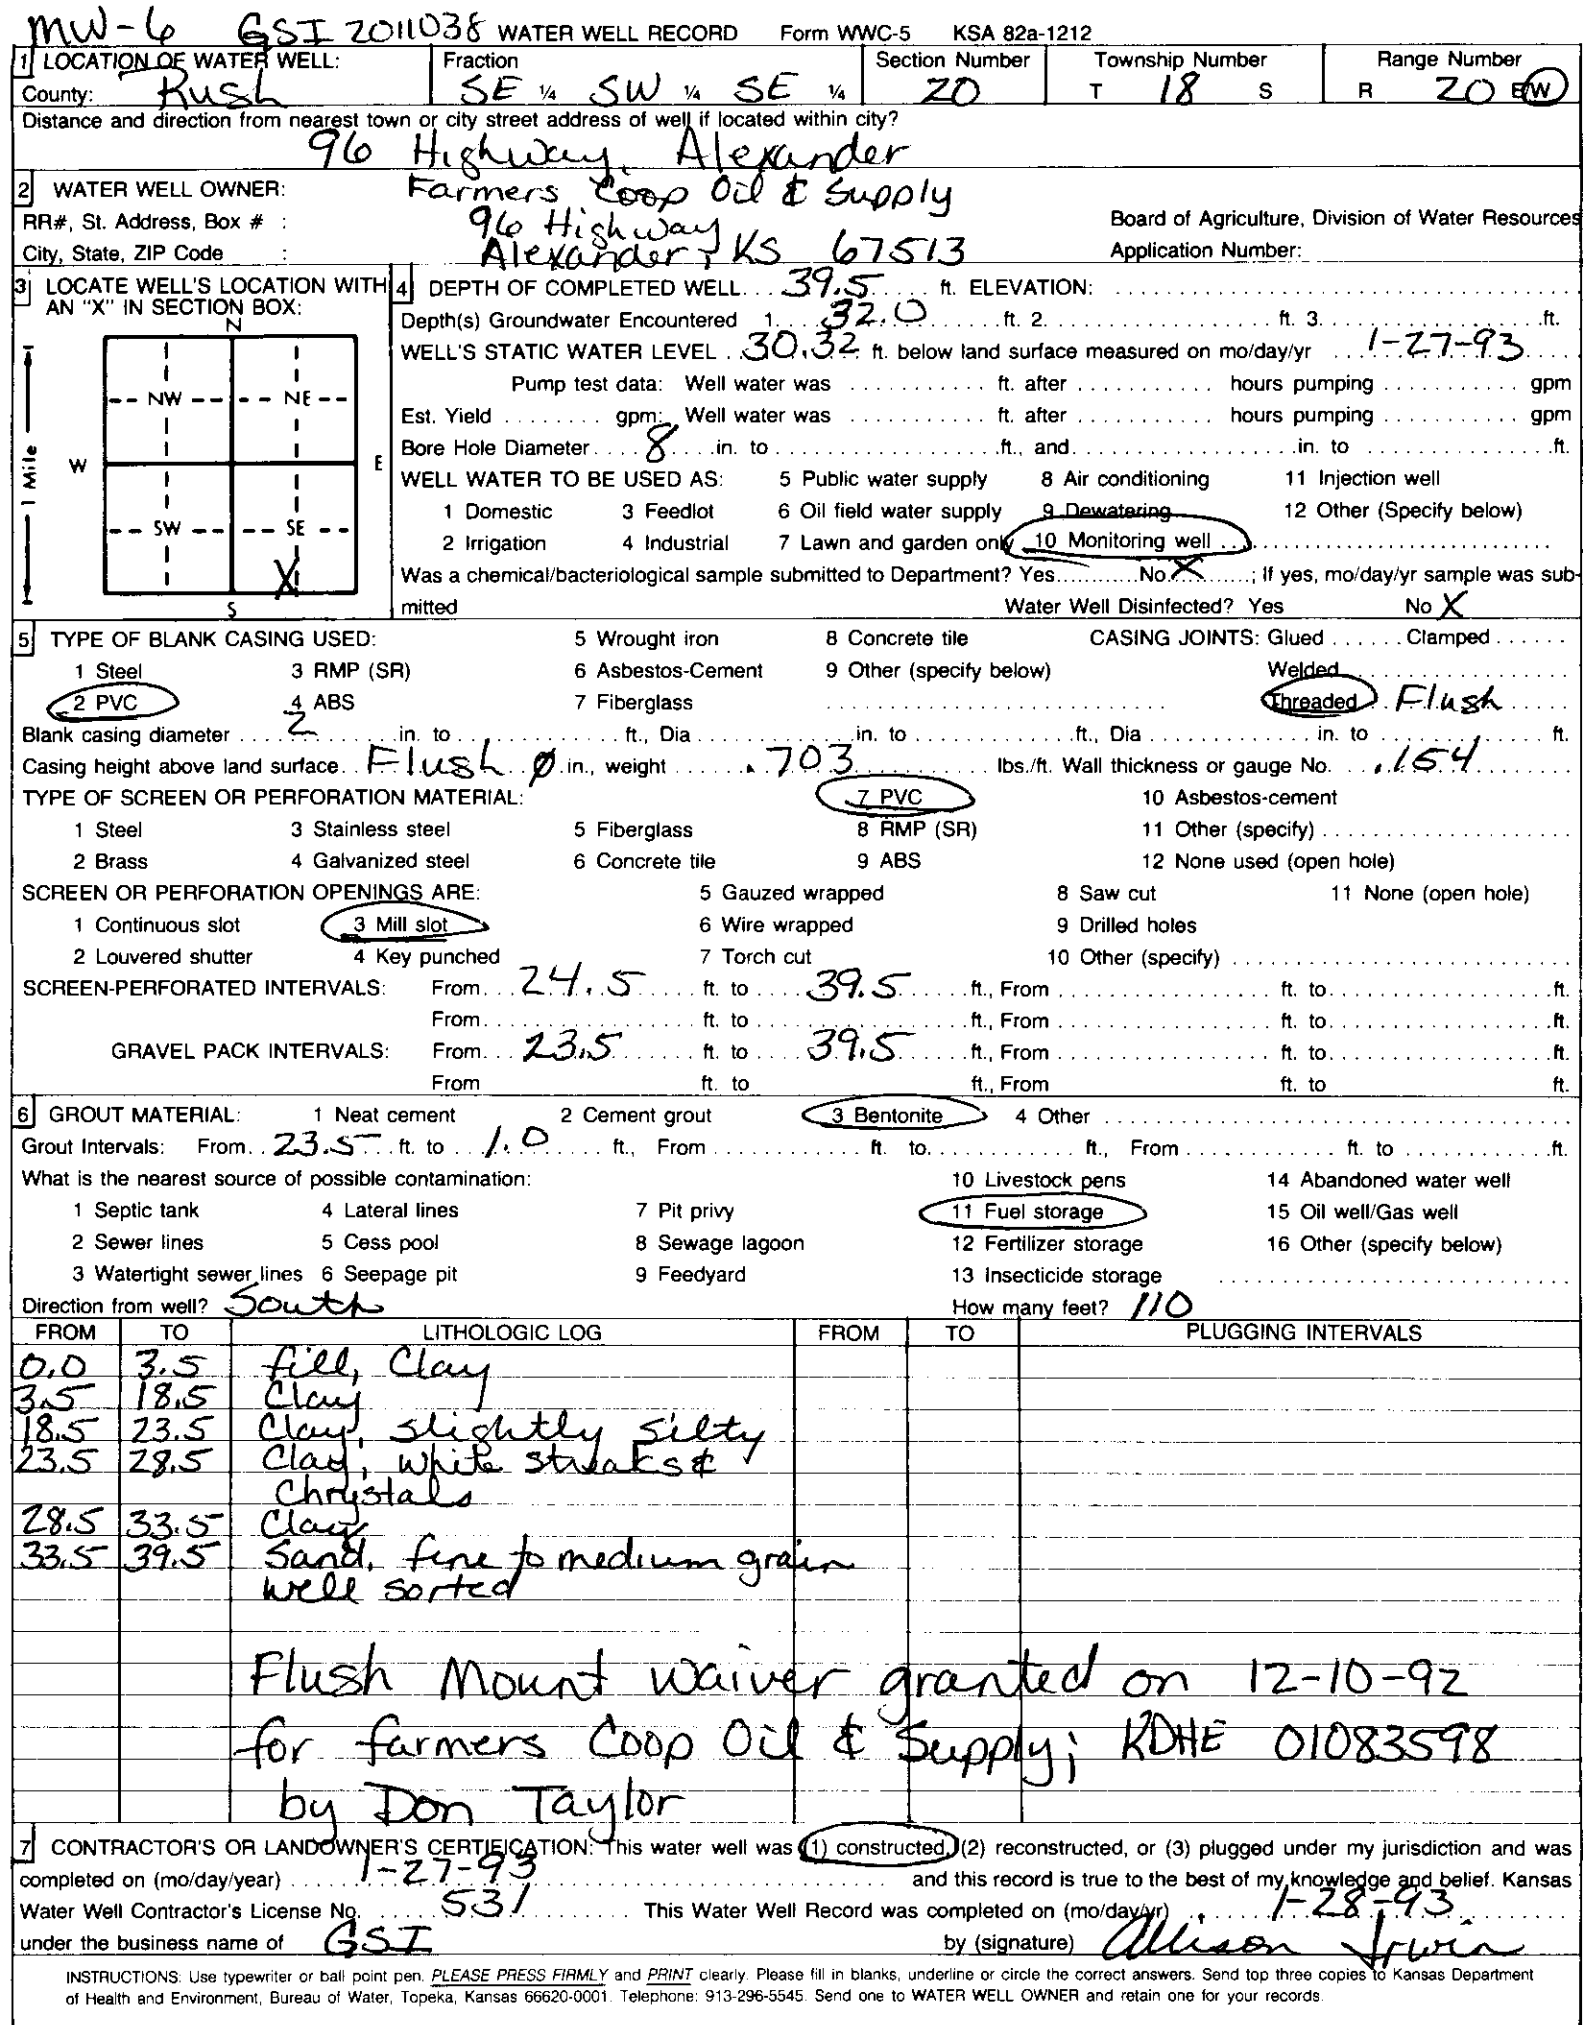 MW-6 GSI 2011038 WATER WELL RECORD Form WWC-5 KSA 82a-1212
1 LOCATION OF WATER WELL: Fraction Section Number Township Number Range Number
County: Rush SE 1/4 SW 1/4 SE 1/4 20 T 18 S R 20 E(W)
Distance and direction from nearest town or city street address of well if located within city?
96 Highway, Alexander
2 WATER WELL OWNER: Farmers Coop Oil & Supply
RR#, St. Address, Box # : 96 Highway Board of Agriculture, Division of Water Resources
City, State, ZIP Code : Alexander, KS 67513 Application Number:
3 LOCATE WELL'S LOCATION WITH AN "X" IN SECTION BOX:
N
NW NE
W E
1 Mile
SW SE
X
S
4 DEPTH OF COMPLETED WELL... 39.5 ft. ELEVATION:
Depth(s) Groundwater Encountered 1. 32.0 ft. 2. ft. 3. ft.
WELL'S STATIC WATER LEVEL . 30.32 ft. below land surface measured on mo/day/yr 1-27-93
Pump test data: Well water was ft. after hours pumping gpm
Est. Yield gpm: Well water was ft. after hours pumping gpm
Bore Hole Diameter 8 in. to ft., and in. to ft.
WELL WATER TO BE USED AS: 5 Public water supply 8 Air conditioning 11 Injection well
1 Domestic 3 Feedlot 6 Oil field water supply 9 Dewatering 12 Other (Specify below)
2 Irrigation 4 Industrial 7 Lawn and garden only 10 Monitoring well
Was a chemical/bacteriological sample submitted to Department? Yes No X ; If yes, mo/day/yr sample was sub-
mitted Water Well Disinfected? Yes No X
5 TYPE OF BLANK CASING USED: 5 Wrought iron 8 Concrete tile CASING JOINTS: Glued Clamped
1 Steel 3 RMP (SR) 6 Asbestos-Cement 9 Other (specify below) Welded
2 PVC 4 ABS 7 Fiberglass Threaded Flush
Blank casing diameter 2 in. to ft., Dia in. to ft., Dia in. to ft.
Casing height above land surface Flush 0 in., weight .703 lbs./ft. Wall thickness or gauge No. .154
TYPE OF SCREEN OR PERFORATION MATERIAL: 7 PVC 10 Asbestos-cement
1 Steel 3 Stainless steel 5 Fiberglass 8 RMP (SR) 11 Other (specify)
2 Brass 4 Galvanized steel 6 Concrete tile 9 ABS 12 None used (open hole)
SCREEN OR PERFORATION OPENINGS ARE: 5 Gauzed wrapped 8 Saw cut 11 None (open hole)
1 Continuous slot 3 Mill slot 6 Wire wrapped 9 Drilled holes
2 Louvered shutter 4 Key punched 7 Torch cut 10 Other (specify)
SCREEN-PERFORATED INTERVALS: From 24.5 ft. to 39.5 ft., From ft. to ft.
From ft. to ft., From ft. to ft.
GRAVEL PACK INTERVALS: From 23.5 ft. to 39.5 ft., From ft. to ft.
From ft. to ft., From ft. to ft.
6 GROUT MATERIAL: 1 Neat cement 2 Cement grout 3 Bentonite 4 Other
Grout Intervals: From 23.5 ft. to 1.0 ft., From ft. to ft., From ft. to ft.
What is the nearest source of possible contamination: 10 Livestock pens 14 Abandoned water well
1 Septic tank 4 Lateral lines 7 Pit privy 11 Fuel storage 15 Oil well/Gas well
2 Sewer lines 5 Cess pool 8 Sewage lagoon 12 Fertilizer storage 16 Other (specify below)
3 Watertight sewer lines 6 Seepage pit 9 Feedyard 13 Insecticide storage
Direction from well? South How many feet? 110
FROM TO LITHOLOGIC LOG FROM TO PLUGGING INTERVALS
0.0 3.5 fill, Clay
3.5 18.5 Clay
18.5 23.5 Clay, slightly silty
23.5 28.5 Clay, white streaks &
Chrystals
28.5 33.5 Clay
33.5 39.5 Sand, fine to medium grain
well sorted
Flush Mount waiver granted on 12-10-92
for farmers Coop Oil & Supply; KDHE 01083598
by Don Taylor
7 CONTRACTOR'S OR LANDOWNER'S CERTIFICATION: This water well was (1) constructed, (2) reconstructed, or (3) plugged under my jurisdiction and was
completed on (mo/day/year) 1-27-93 and this record is true to the best of my knowledge and belief. Kansas
Water Well Contractor's License No. 531 This Water Well Record was completed on (mo/day/yr) 1-28-93
under the business name of GSI by (signature) Allison Irwin
INSTRUCTIONS: Use typewriter or ball point pen. PLEASE PRESS FIRMLY and PRINT clearly. Please fill in blanks, underline or circle the correct answers. Send top three copies to Kansas Department
of Health and Environment, Bureau of Water, Topeka, Kansas 66620-0001. Telephone: 913-296-5545. Send one to WATER WELL OWNER and retain one for your records.